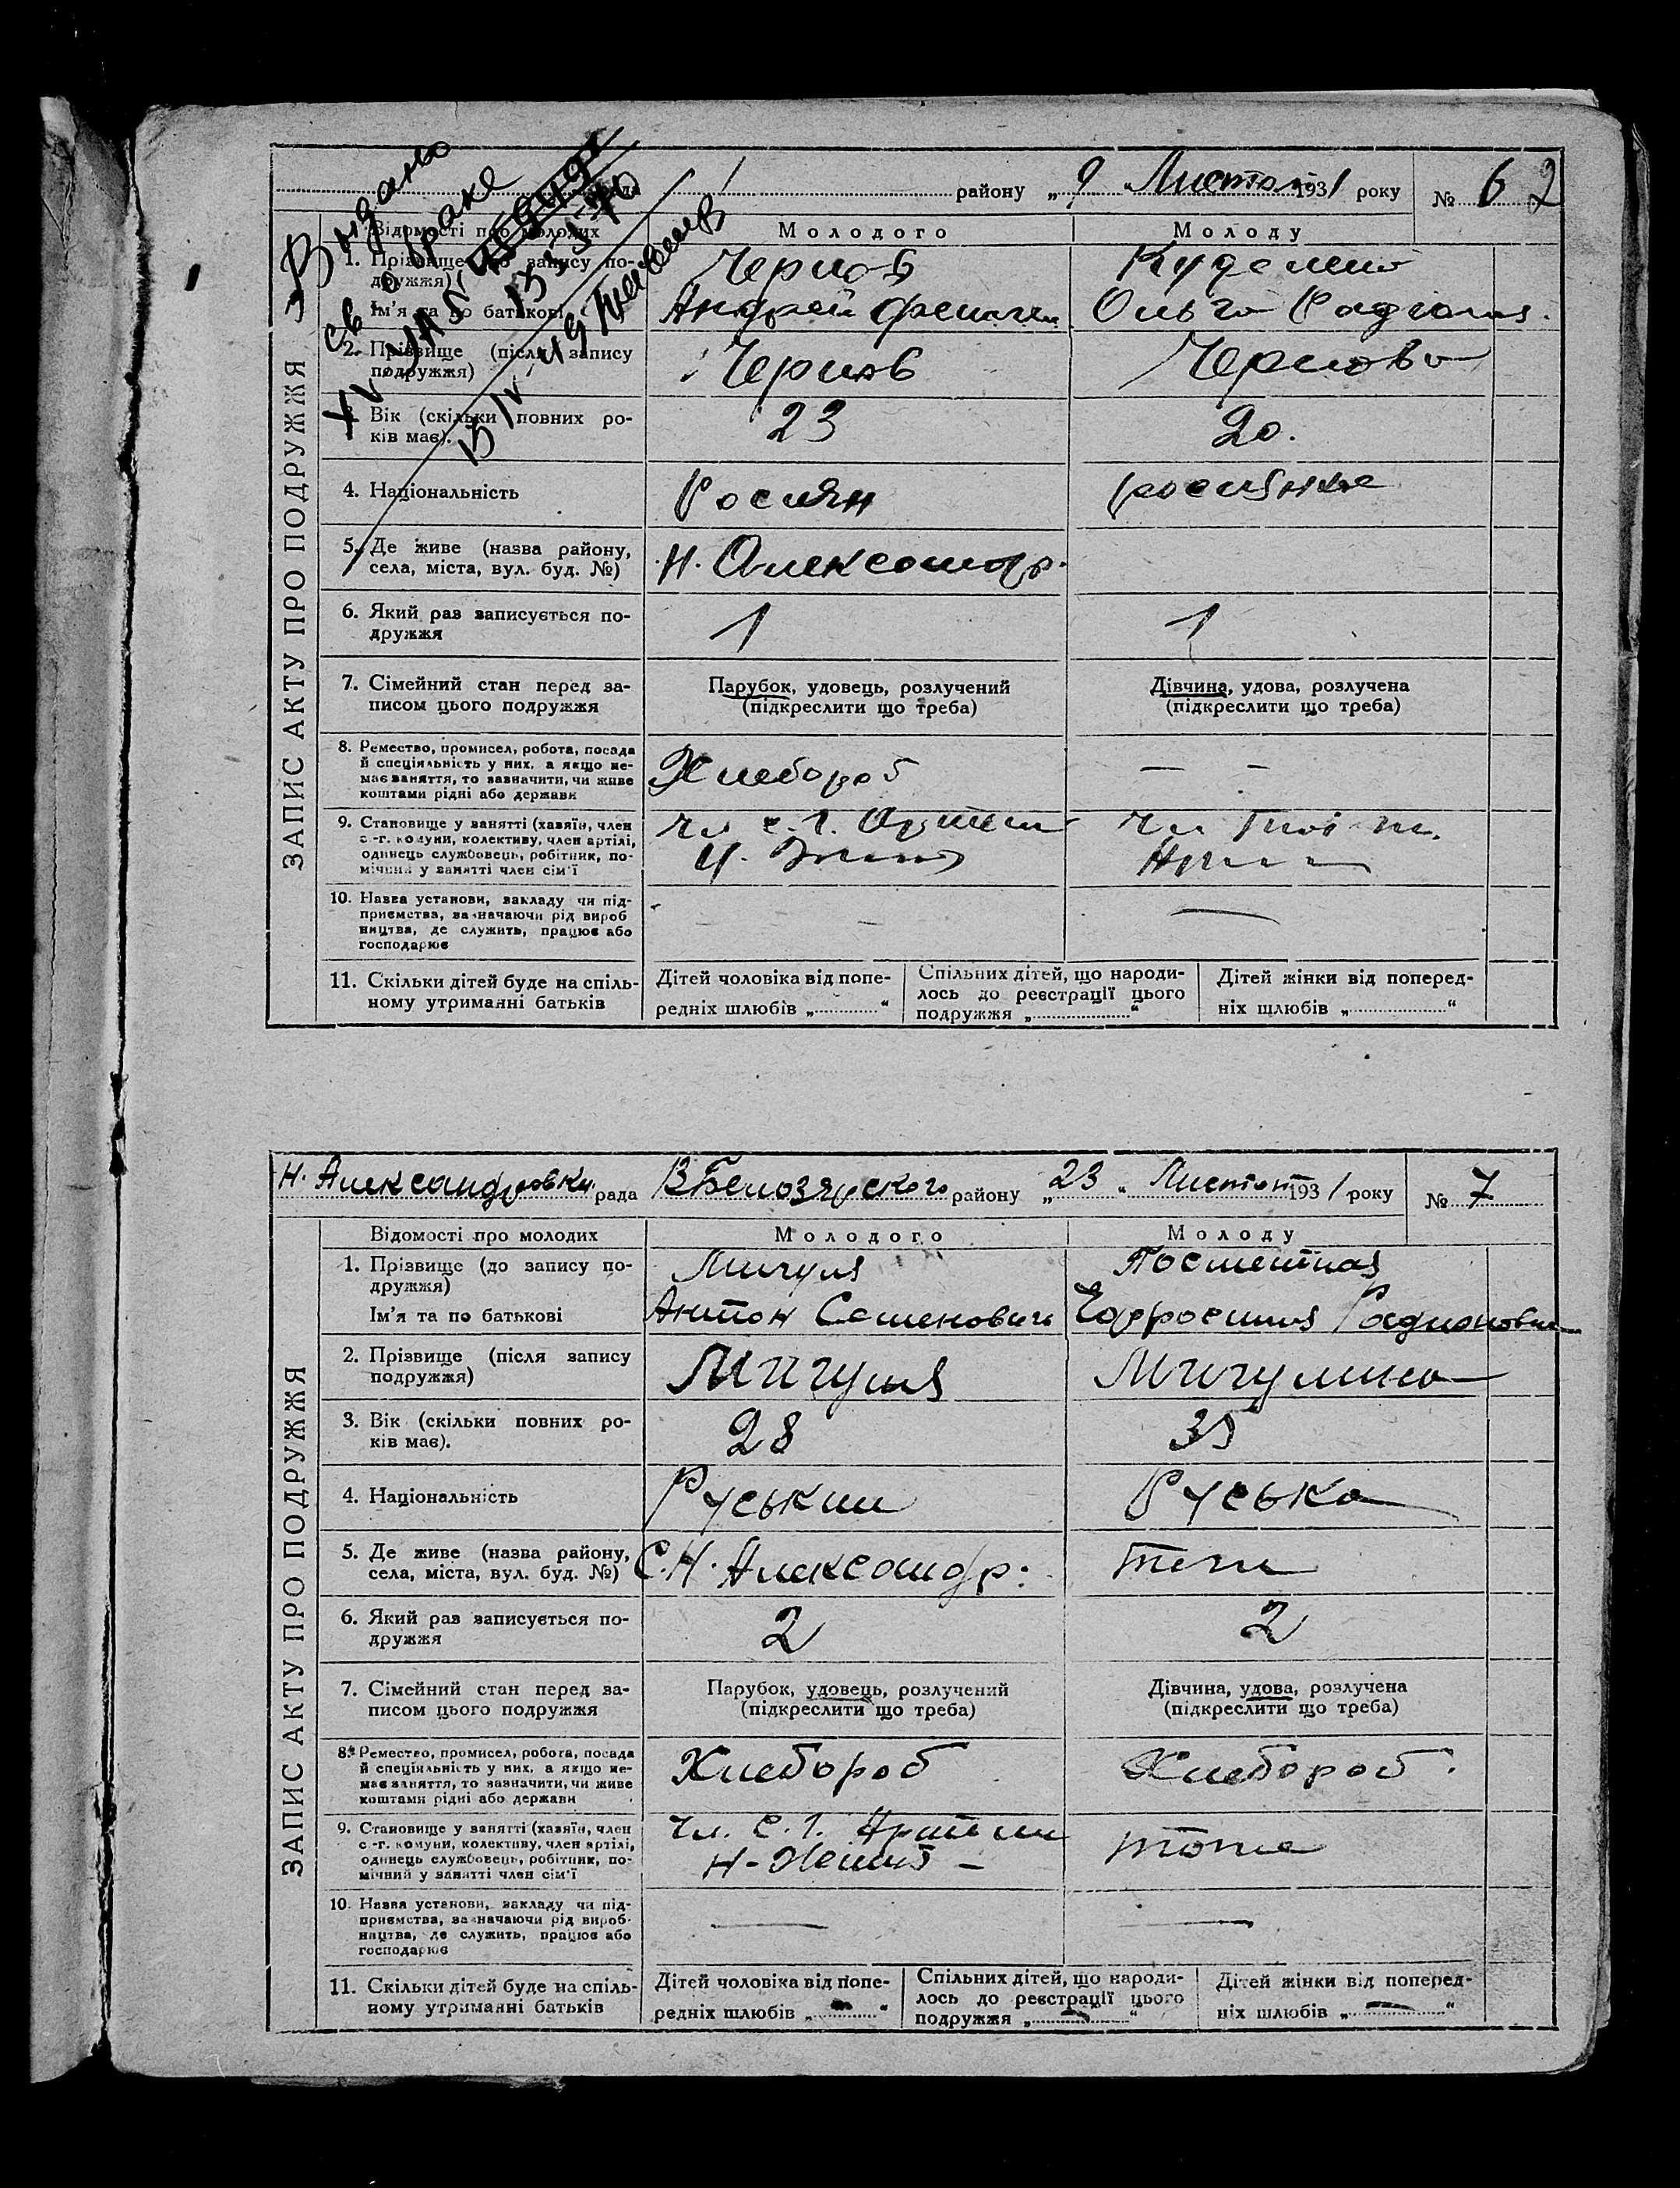 Видано
св. о браке
района „ 9 „ Листоп 1931 року № 6 2
ЗАПИС АКТУ ПРО ПОДРУЖЖЯ
Відомості про молодих Молодого Молоду
1. Прізвище (до запису по-
дружжя) Чернов
Ім'я та по батькові Андрей Ольга
2. Прізвище (після запису
подружжя) Чернов Чернова
3. Вік (скільки повних ро-
ків має). 23 20.
4. Національність Росиян росиянка
5. Де живе (назва району,
села, міста, вул. буд. №) Н. Александр.
6. Який раз записується по-
дружжя 1 1
7. Сімейний стан перед за-
писом цього подружжя
Парубок, удовець, розлучений
(підкреслити що треба)
Дівчина, удова, розлучена
(підкреслити що треба)
8. Ремество, промисел, робота, посада
й спеціяльність у них, а якщо не-
має заняття, то зазначити, чи живе
коштами рідні або держави
Хлебороб — —
9. Становище у занятті (хазяїн, член
с.-г. комуни, колективу, член артілі,
одинець службовець, робітник, по-
мічний у занятті член сім'ї
Чл с. г. Артели
10. Назва установи, закладу чи під-
приємства, зазначаючи рід вироб
ництва, де служить, працює або
господарює
11. Скільки дітей буде на спіль-
ному утриманні батьків
Дітей чоловіка від попе-
редніх шлюбів „ “
Спільних дітей, що народи-
лось до реєстрації цього
подружжя „ “
Дітей жінки від поперед-
ніх шлюбів „ “
Н. Александровки. рада В Белозярского району „ 23 „ Листоп 1931 року № 7
ЗАПИС АКТУ ПРО ПОДРУЖЖЯ
Відомості про молодих Молодого Молоду
1. Прізвище (до запису по-
дружжя) Мигуля
Ім'я та по батькові Антон Семенович Ефросиния Радионовна
2. Прізвище (після запису
подружжя) Мигуля Мигулина
3. Вік (скільки повних ро-
ків має). 28 35
4. Національність Руський Руська
5. Де живе (назва району,
села, міста, вул. буд. №) С. Н. Александр.
6. Який раз записується по-
дружжя 2 2
7. Сімейний стан перед за-
писом цього подружжя
Парубок, удовець, розлучений
(підкреслити що треба)
Дівчина, удова, розлучена
(підкреслити що треба)
8. Ремество, промисел, робота, посада
й спеціяльність у них, а якщо не-
має заняття, то зазначити, чи живе
коштами рідні або держави
Хлебороб Хлебороб.
9. Становище у занятті (хазяїн, член
с.-г. комуни, колективу, член артілі,
одинець службовець, робітник, по-
мічний у занятті член сім'ї
Чл. с. г. Артели тоже
10. Назва установи, закладу чи під-
приємства, зазначаючи рід вироб-
ництва, де служить, працює або
господарює
11. Скільки дітей буде на спіль-
ному утриманні батьків
Дітей чоловіка від попе-
редніх шлюбів „ — “
Спільних дітей, що народи-
лось до реєстрації цього
подружжя „ — “
Дітей жінки від поперед-
ніх шлюбів „ — “